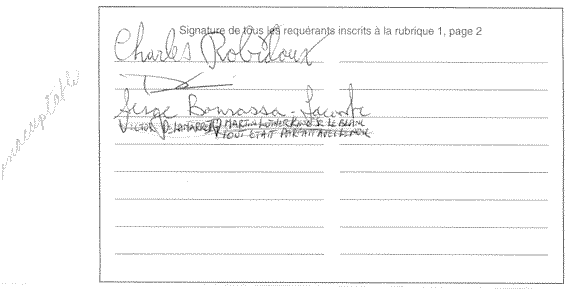 Signature de tous les requérants inscrits à la rubrique 1, page 2
Charles Robidoux
Serge Bourassa-Lacombe
VICTOR DELAMARRE MARTIN LUTHER KING SR LE BLANC
TOUT ETAIT PARFAIT AVEC LE NOIR
unacceptable